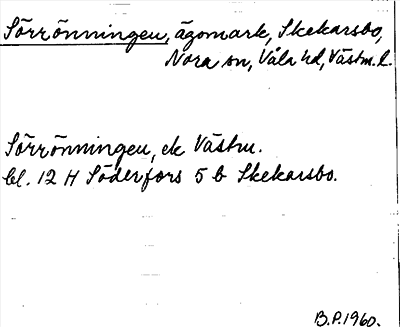 Sörrönningen, ägomark, Skekarsbo,
Nora sn, Våla hd, Västm. l.
Sörrönningen, ek Västm.
bl. 12 H Söderfors 5 b Skekarsbo.
B.P. 1960.